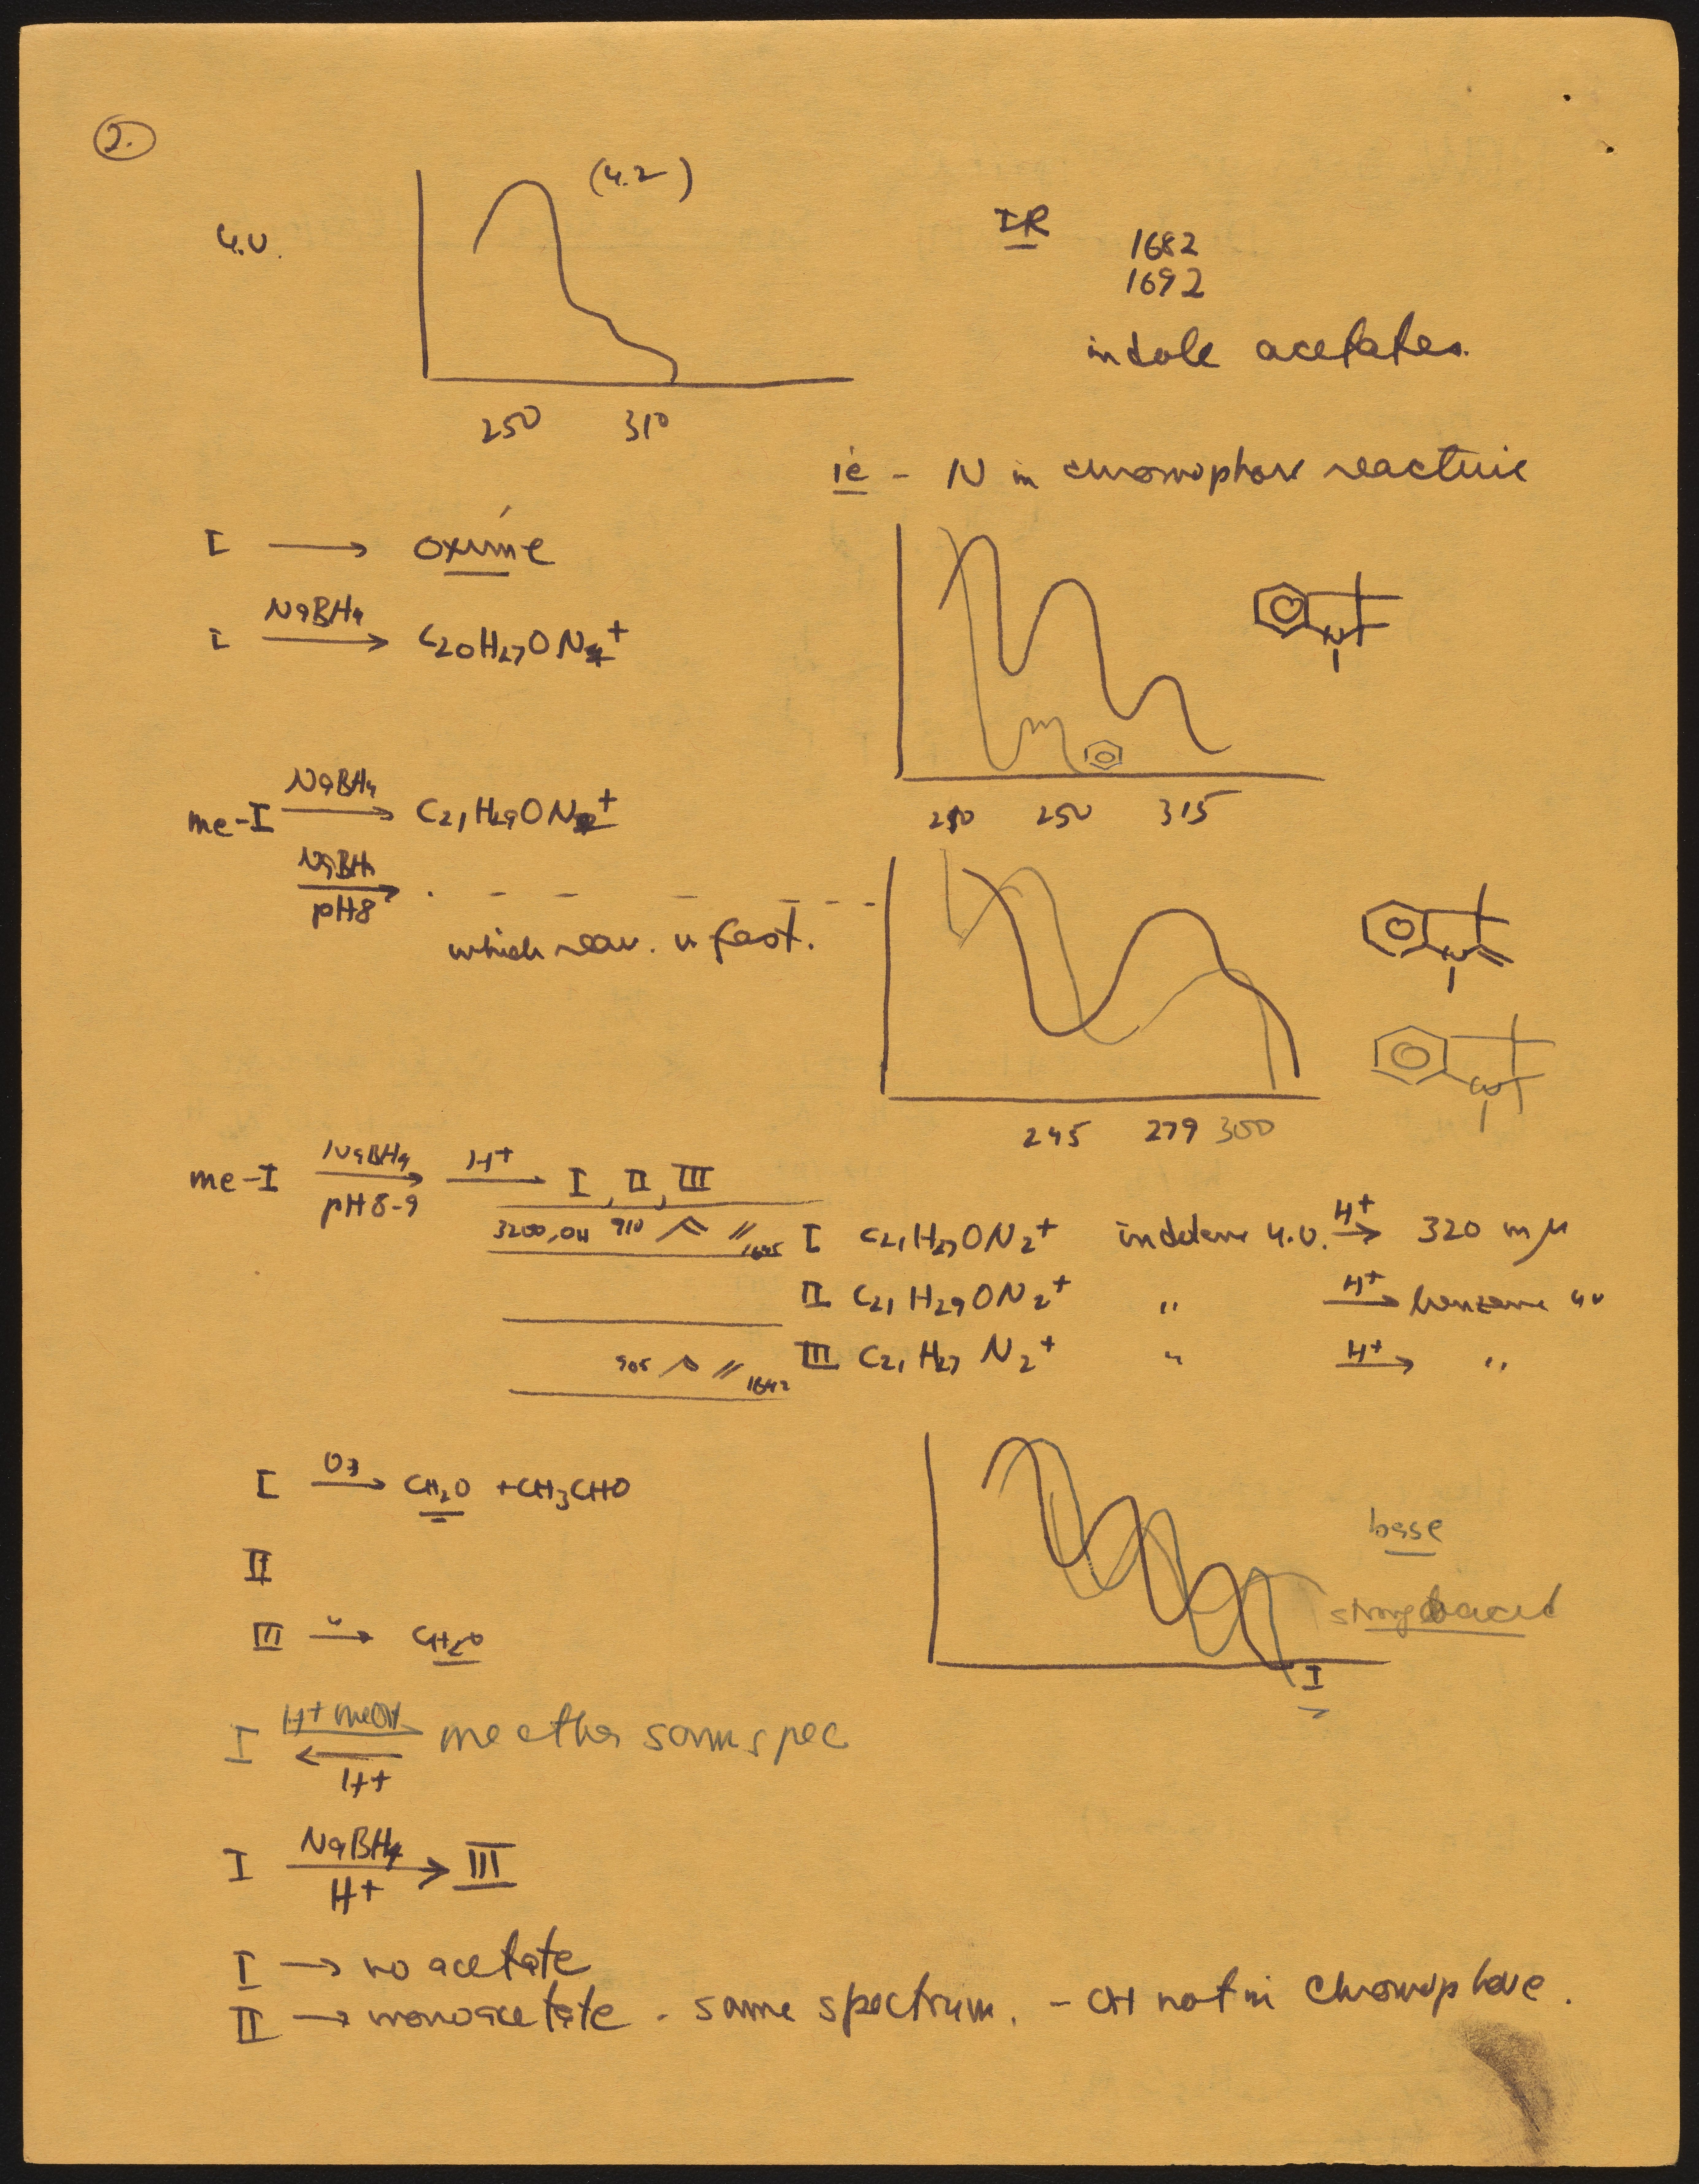 2.
u.v.
(4.2)
250 310
IR
1682
1692
indole acetates.
ie - N in chromophore reactive
I ⟶ oxime
I NaBH4 ⟶ C20H27ON2+
210 250 315
N
me-I NaBH4 ⟶ C21H29ON2+
NaBH4 ⟶ pH8 . - - - - - -
which reac. is fast.
245 279 300
N
N
me-I NaBH4 ⟶ pH8-9 H+ ⟶ I, II, III
3200, OH 910 // 1645 I C21H27ON2+ indolene u.v. H+ ⟶ 320 mμ
II C21H29ON2+ " H+ ⟶ benzene uv
905 // 1642 III C21H27N2+ " H+ ⟶ "
I O3 ⟶ CH2O + CH3CHO
II
III " ⟶ CH2O
base
strong acid
I
I H+ MeOH ⇌ H+ me ether same spec
I NaBH4 ⟶ H+ III
I ⟶ no acetate
II ⟶ monoacetate - same spectrum. - OH not in chromophore.